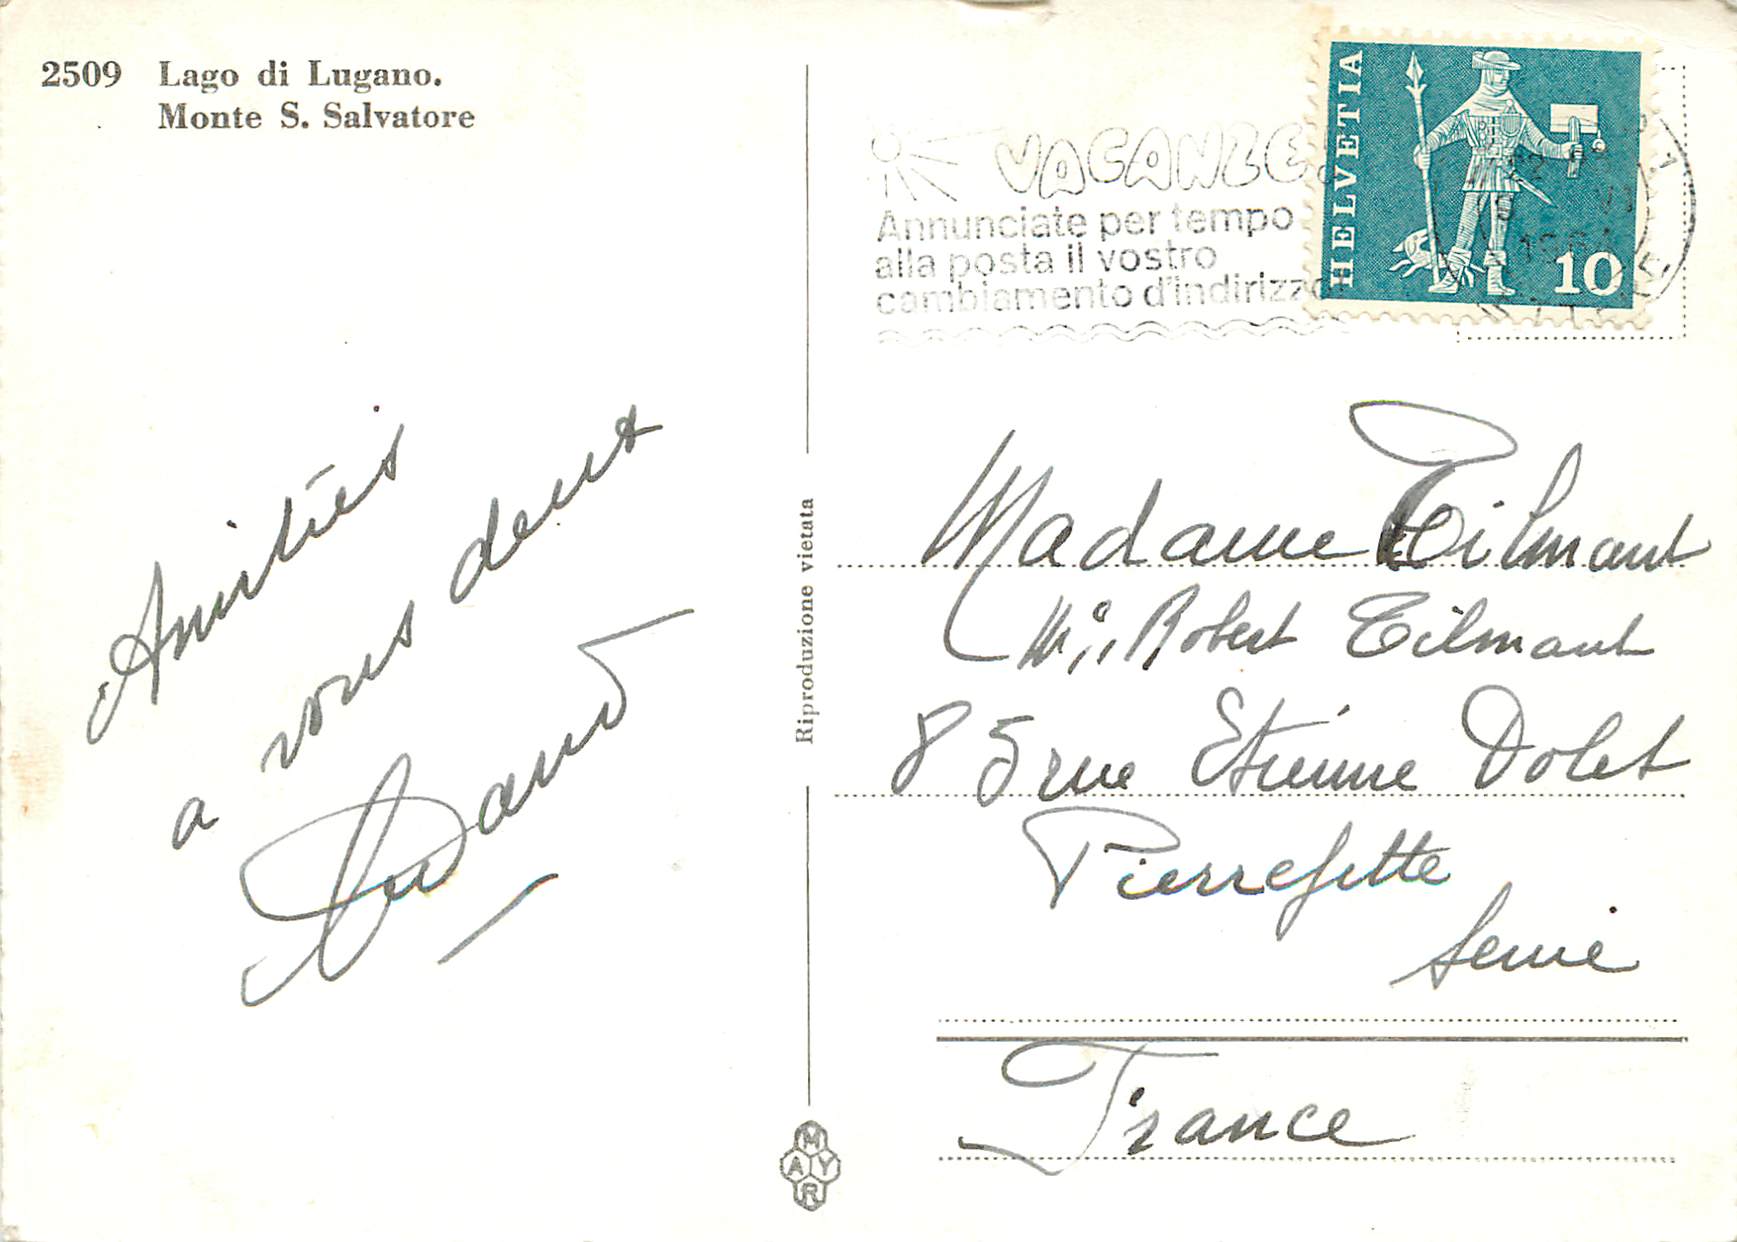 2509 Lago di Lugano.
Monte S. Salvatore
Amitiés
a vous deux
VACANZE
Annunciate per tempo
alla posta il vostro
cambiamento d'indirizzo
HELVETIA
10
Riproduzione vietata
Madame Tilmant
Robert Tilmant
85 rue Etienne Dolet
Pierrefitte
Seine
France
MAYR